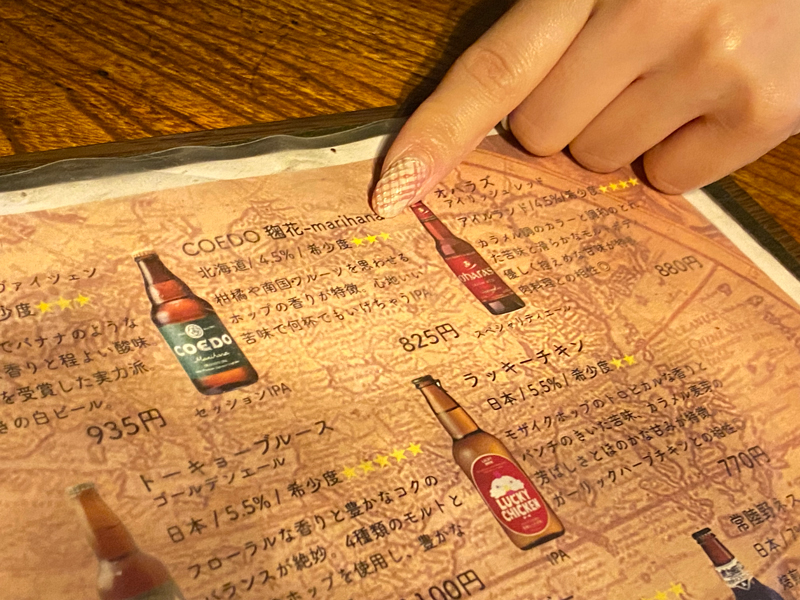 ヴァイツェン
少度★★★
でバナナのような
香りと程よい酸味
を受賞した実力派
の白ビール
935円
COEDO 毱花-marihana
北海道 / 4.5% / 希少度★★★
柑橘や南国フルーツを思わせる
ホップの香りが特徴。心地いい
苦味で何杯でもいけちゃうIPA
825円
COEDO
Marihana
セッションIPA
オハラズ
アイリッシュレッド
アイルランド/4.5%/希少度★★★★
カラメル麦のカラーで
た苦味と滑らかな
優しく控えめな甘味が
肉料理との相性◎
880円
ohara's
スペシャルティビール
ラッキーチキン
日本 / 5.5% / 希少度★★
モザイクホップのトロピカルな香りと
パンチのきいた苦味、カラメル麦芽の
芳ばしさとほのかな甘みが特徴
ガーリックハーブチキンとの相性
770円
LUCKY
CHICKEN
IPA
トーキョーブルース
ゴールデンエール
日本 / 5.5% / 希少度★★★★★
フローラルな香りと豊かなコクの
バランスが絶妙。4種類のモルトと
ホップを使用し、豊かな
100円
常陸野ネス
日本